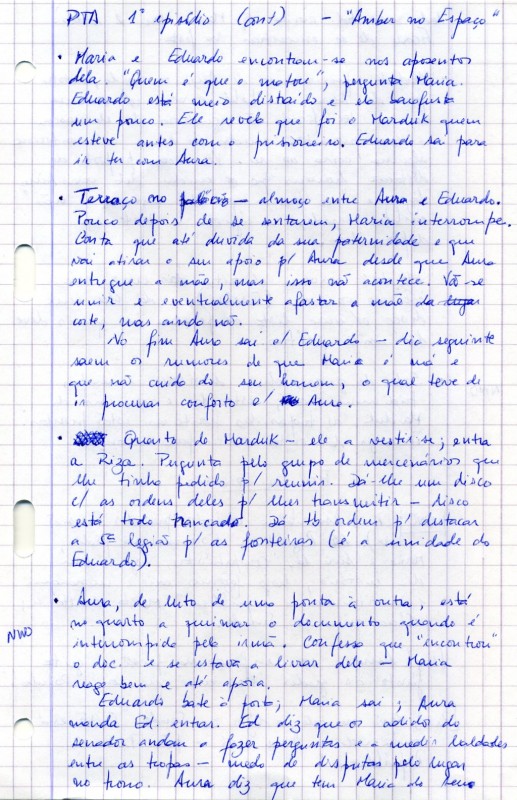 PTA 1º episódio (cont) - "Amber no Espaço"
• Maria e Eduardo encontram-se nos aposentos
dela. "Quem é que o matou", pergunta Maria.
Eduardo está meio distraído e ela barafusta
um pouco. Ele revela que foi o Marduk quem
esteve antes com o prisioneiro. Eduardo sai para
ir ter com Aura.
• Terraço no palácio - almoço entre Aura e Eduardo.
Pouco depois de se sentarem, Maria interrompe.
Conta que até duvida da sua paternidade e que
vai atirar o seu apoio p/ Aura desde que Aura
entregue a mãe, mas isso não acontece. Vão-se
unir e eventualmente afastar a mãe da
corte, mas ainda não.
No fim Aura sai c/ Eduardo - dia seguinte
saem os rumores de que Maria é má e
que não cuida do seu homem, o qual teve de
ir procurar conforto c/ Aura.
• Quarto de Marduk - ele a vestir-se; entra
a Riza. Pergunta pelo grupo de mercenários que
lhe tinha pedido p/ reunir. Dá-lhe um disco
c/ as ordens deles p/ lhes transmitir - disco
está todo trancado. Dá tb ordem p/ destacar
a 5ª legião p/ as fronteiras (é a unidade do
Eduardo).
• Aura, de luto de uma ponta à outra, está
NWO
no quarto a queimar o documento quando é
interrompida pela irmã. Confessa que "encontrou"
o doc. e se estava a livrar dele - Maria
reage bem e até apoia.
Eduardo bate à porta; Maria sai; Aura
manda Ed. entrar. Ed diz que os adidos do
senador andam a fazer perguntas e a medir lealdades
entre as tropas - medo de disputas pelo lugar
no trono. Aura diz que tem Maria do seu